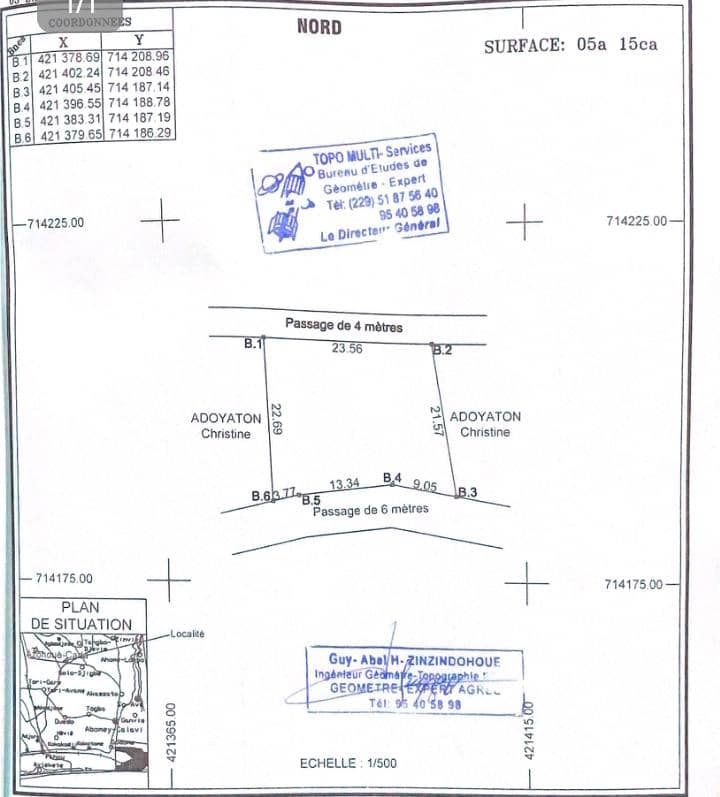 1/1
COORDONNEES
Bnes X Y
B.1 421 378.69 714 208.96
B.2 421 402.24 714 208.46
B.3 421 405.45 714 187.14
B.4 421 396.55 714 188.78
B.5 421 383.31 714 187.19
B.6 421 379.65 714 186.29
NORD
SURFACE: 05a 15ca
TOPO MULTI- Services
Bureau d'Etudes de
Géomètre - Expert
Tél: (229) 51 87 56 40
95 40 58 98
Le Directeur Général
714225.00
714225.00
Passage de 4 mètres
B.1
23.56
B.2
22.69
21.57
ADOYATON
Christine
ADOYATON
Christine
B.6
3.77
B.5
13.34
B.4
9.05
B.3
Passage de 6 mètres
714175.00
714175.00
PLAN
DE SITUATION
Localité
Guy- Abel H. ZINZINDOHOUE
Ingénieur Géomètre-Topographe
GEOMETRE-EXPERT AGREE
Tél: 95 40 58 98
421365.00
421415.00
ECHELLE : 1/500